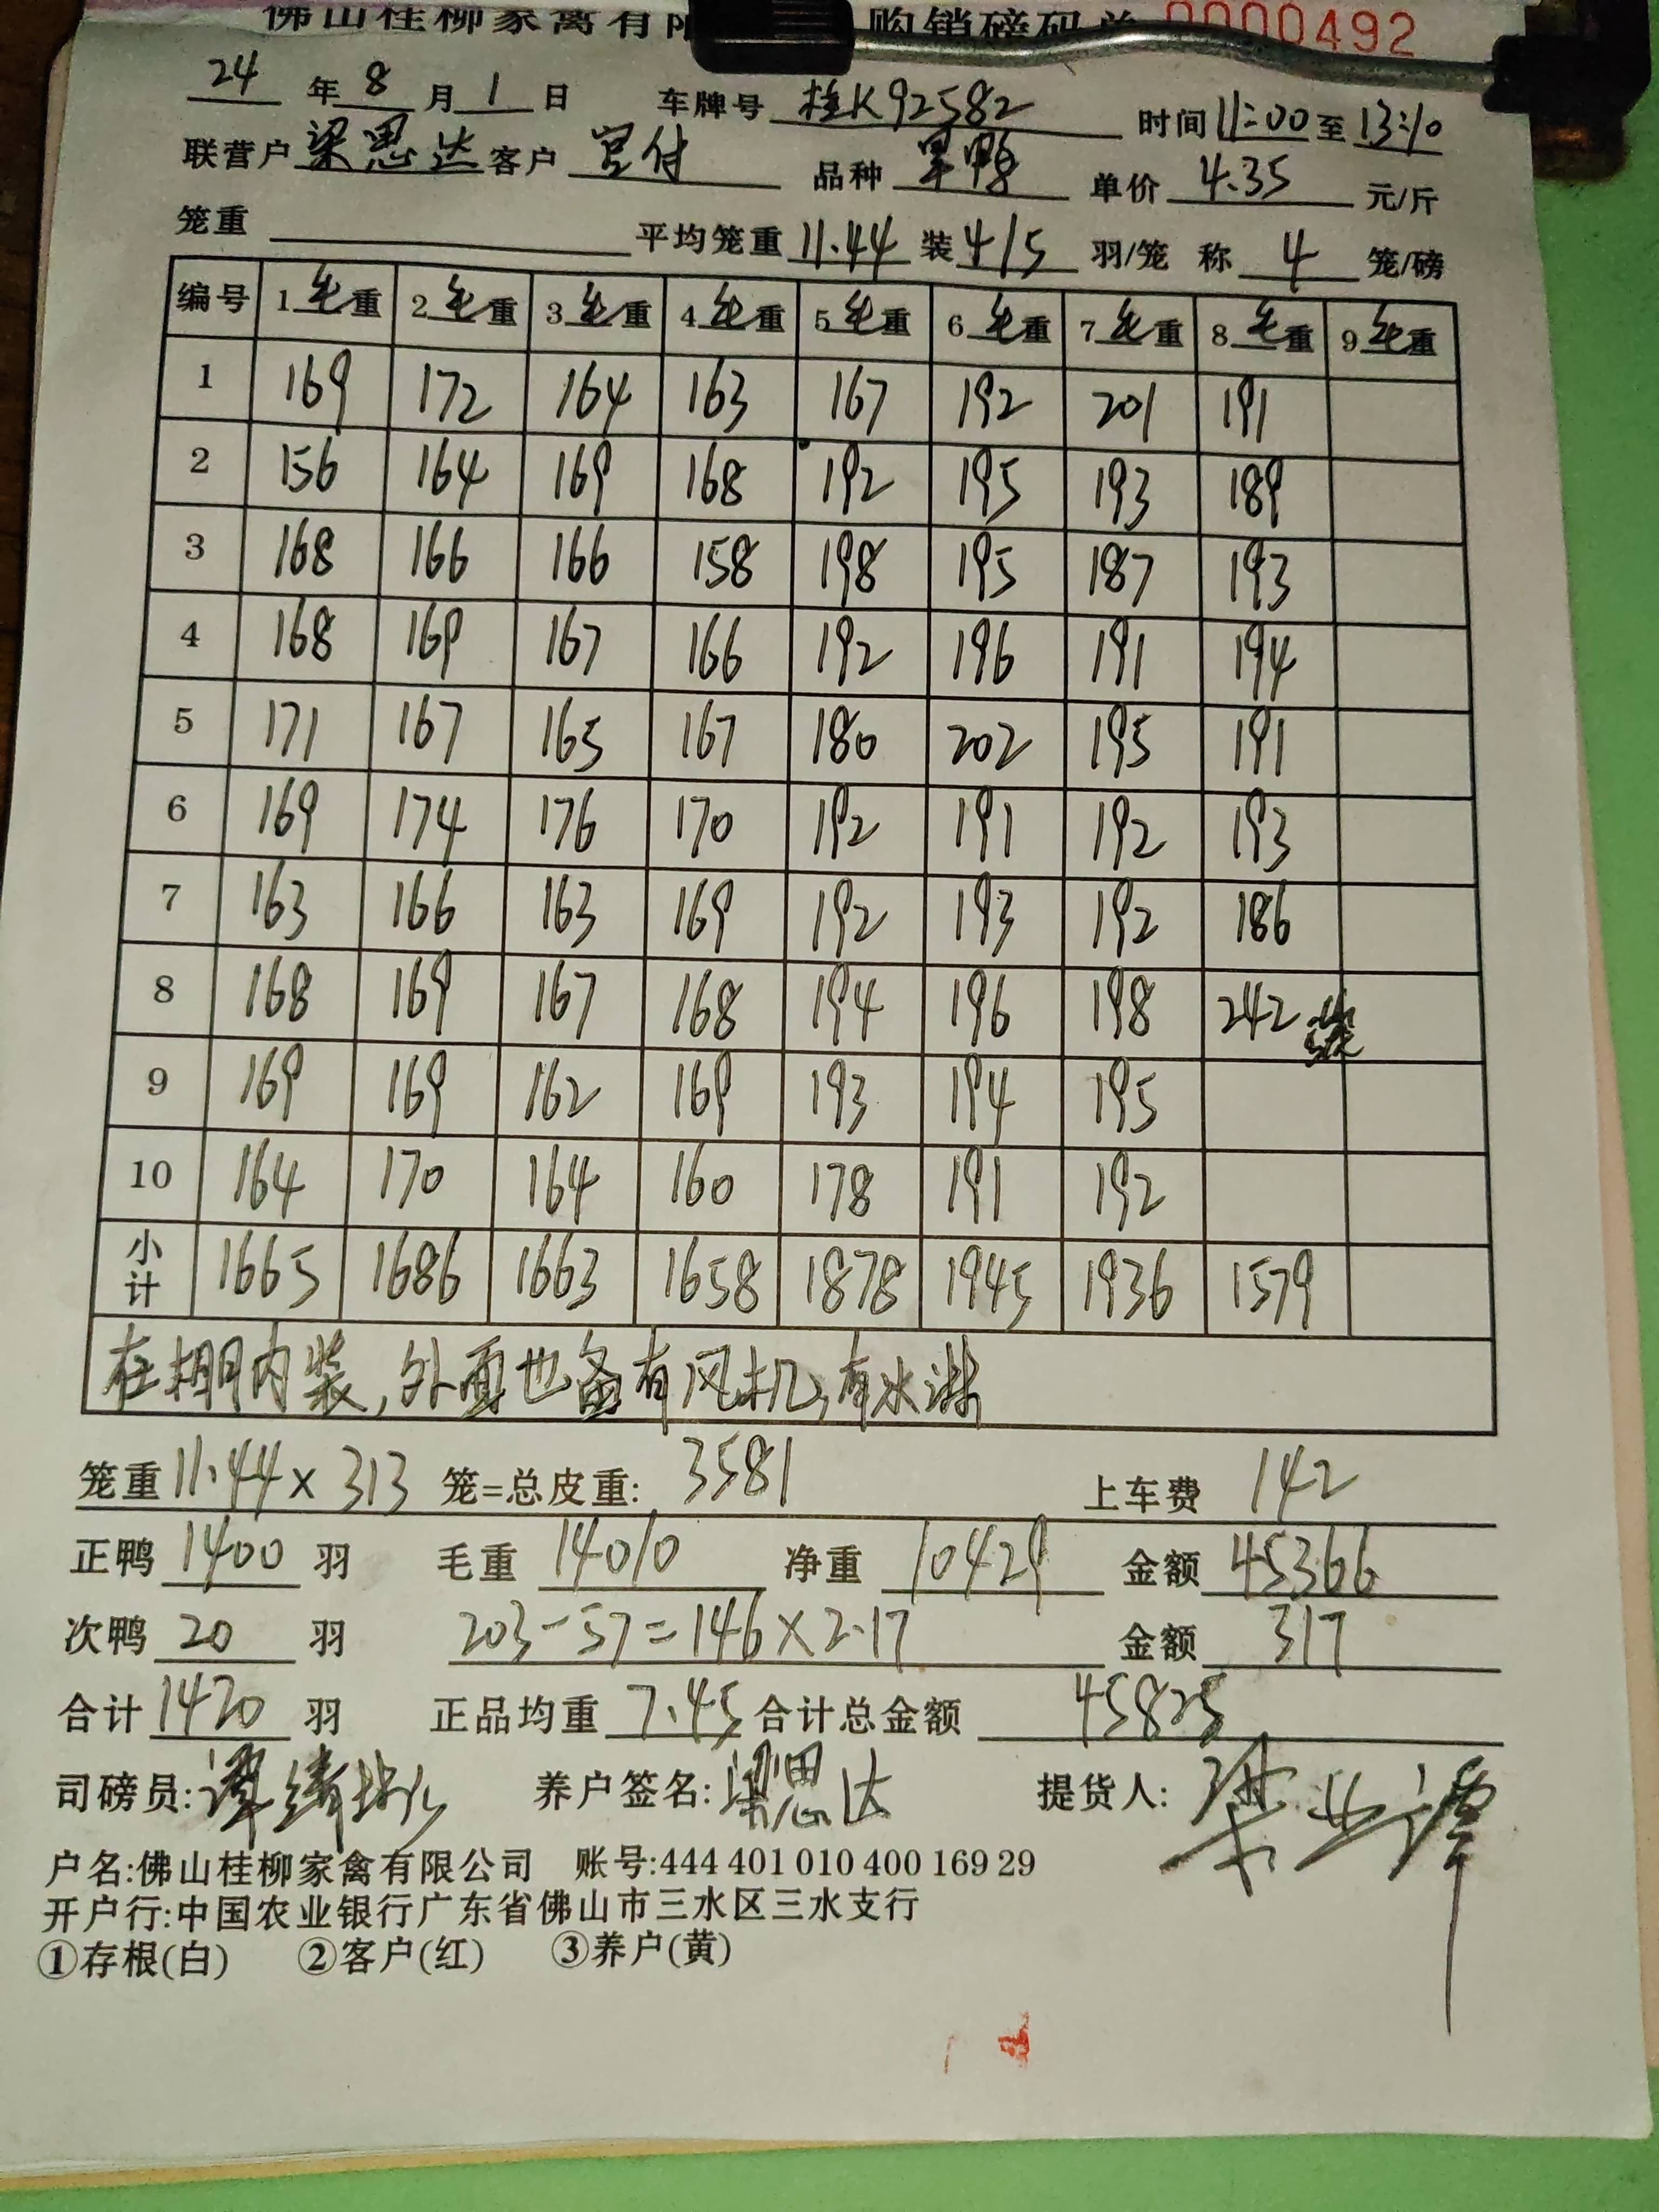 佛山桂柳家禽有限 购销磅码单 0000492
24 年 8 月 1 日 车牌号 桂K92582 时间 11:00 至 13:10
联营户 梁思达 客户 品种 单价 4.35 元/斤
笼重 平均笼重 11.44 装 4/5 羽/笼 称 4 笼/磅
编号 1毛重 2毛重 3毛重 4毛重 5毛重 6毛重 7毛重 8毛重 9毛重
1 169 172 164 163 167 192 201 191
2 156 164 169 168 192 195 193 189
3 168 166 166 158 198 195 187 193
4 168 169 167 166 192 196 191 194
5 171 167 165 167 180 202 195 191
6 169 174 176 170 192 191 192 193
7 163 166 163 169 192 193 192 186
8 168 169 167 168 194 196 198 242
9 169 169 162 169 193 194 195
10 164 170 164 160 178 191 192
小计 1665 1686 1663 1658 1878 1945 1936 1579
在棚内装,外面也备有风机,有水淋
笼重 11.44×313 笼=总皮重: 3581 上车费 142
正鸭 1400 羽 毛重 14010 净重 10429 金额 45366
次鸭 20 羽 203-57=146×2.17 金额 317
合计 1420 羽 正品均重 7.45 合计总金额 45825
司磅员: 养户签名: 梁思达 提货人:
户名:佛山桂柳家禽有限公司 账号:444 401 010 400 169 29
开户行:中国农业银行广东省佛山市三水区三水支行
①存根(白) ②客户(红) ③养户(黄)